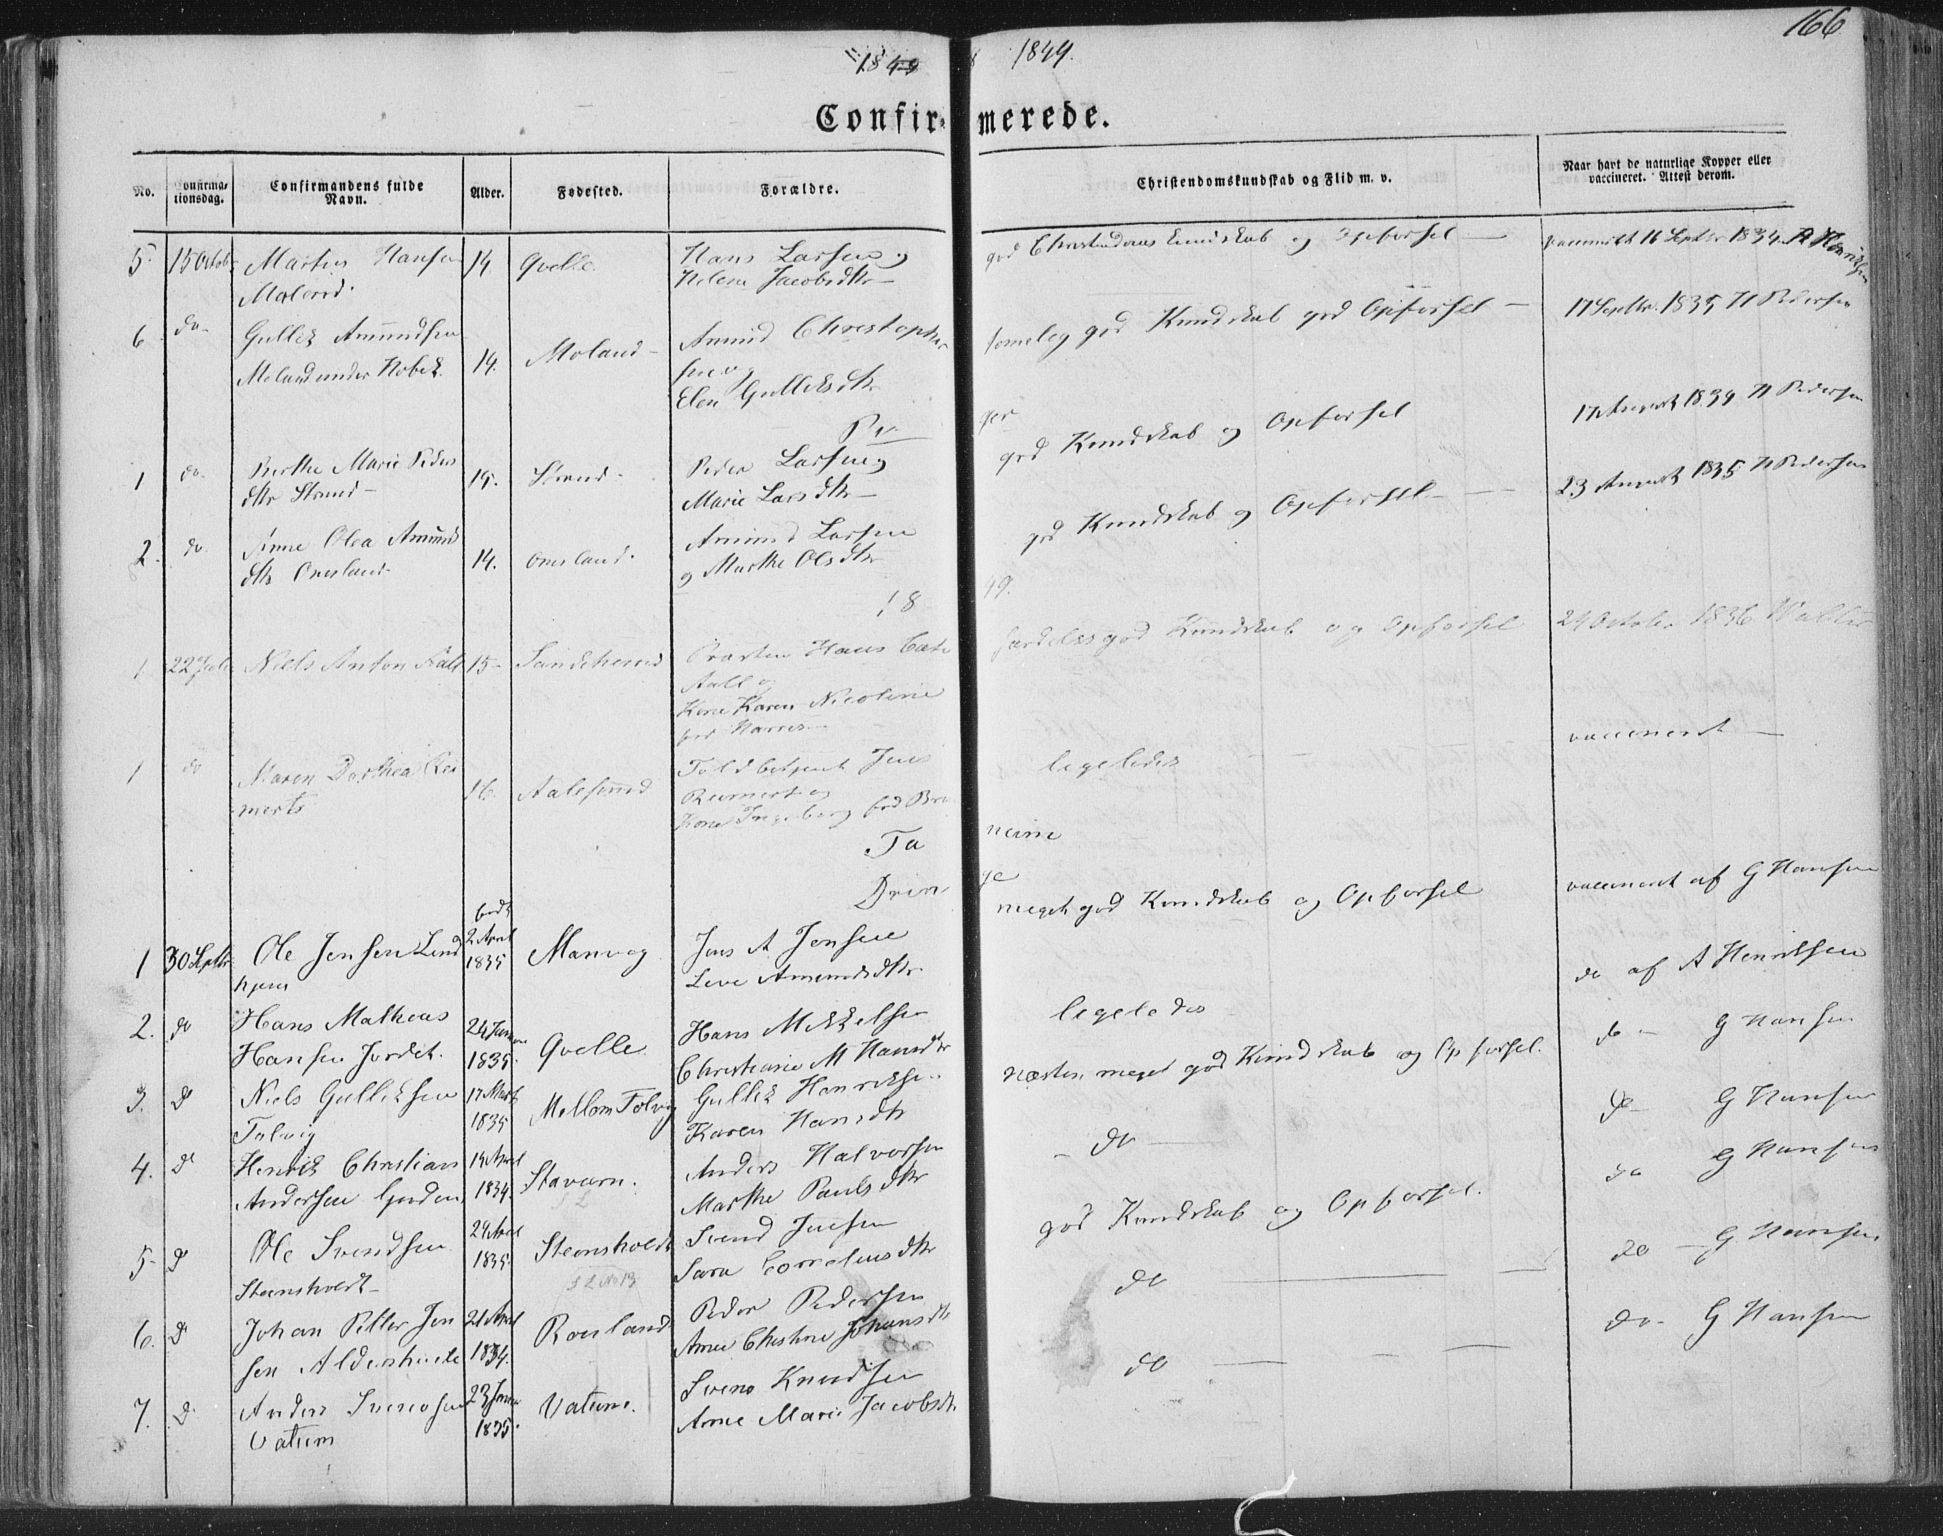 166
1849 1849.
Confirmerede.
No. Confirmationsdag. Confirmandens fulde Navn. Alder. Fødested. Forældre. Christendomskundskab og Flid m. v. Naar havt de naturlige Kopper eller vaccineret. Attest derom.
5. 15 Octob. Martin Hansen 14. Qvelle Hans Larsen og god Christendoms kundskab og Opførsel — vaccineret 16 Septbr. 1834. A Henriksen
Helene Jacobsdtr —
6 do. Gullik Amundsen 14. Moland — Amund Christopher temelig god Kundskab god Opførsel — 17 Septbr. 1835 H Pedersen
Moland under Hobek. sen og
Elen Gulliksdtr
Piger
1 do. Berthe Marie Peders 15. Strand — Peder Larsen og god Kundskab og Opførsel 17 August 1834 H Pedersen
dtr Strand — Marie Larsdtr —
2. do Anne Olea Amunds 14. Omsland. Amund Larsen god Kundskab og Opførsel — 23 August 1835 H Pedersen
dtr Omsland og Marthe Olsdtr
1849.
1 22 Juli Niels Anton Aall 15 — Sandeherred Præsten Hans Cato særdeles god Kundskab og Opførsel 24 October 1836
Aall og
Kone Karen Nicoline
født
1 do Maren Dorthea Rei 16. Aalesund Toldbetjent Jens ligeledes vaccineret —
merts Reimert og
Kone Ingeborg født
Tanum
Drenge
1 30 Septbr. Ole Jensen Lind født 2 April 1835 Manvog Jens A Jensen meget god Kundskab og Opførsel vaccineret af G Hansen
hjem Live Amundsdtr.
2. do Hans Matheus 24 Januar 1835. Qvelle Hans Mikkelsen ligeledes do af A Henriksen
Hansen Jordet. Christiane M Hansdtr
3. do Niels Gulliksen 17 Marts 1835 Mellom Tolvig Gullik Henriksen næsten meget god Kundskab og Opførsel. do — G Hansen
Tolvig Karen Hansdtr
4. do Henrik Christian 14 April 1834. Staværn. Anders Halvorsen — do — do — G Hansen
Andersen Marthe Paulsdtr
5 — do Ole Svendsen 24 April 1835 Steensholdt Svend Jensen god Kundskab og Opførsel. do G Hansen
Steensholdt — Sara Corneliusdtr
6. do Johan Petter Jen 21 April 1834. Roeland Peder Pedersen do do — G Hansen
sen Anne Christine Johansdtr
7. do Anders Svensen 23 Januar 1835. Vatum. Svend Knudsen do do — G Hansen
Vatum Anne Marie Jacobsdtr